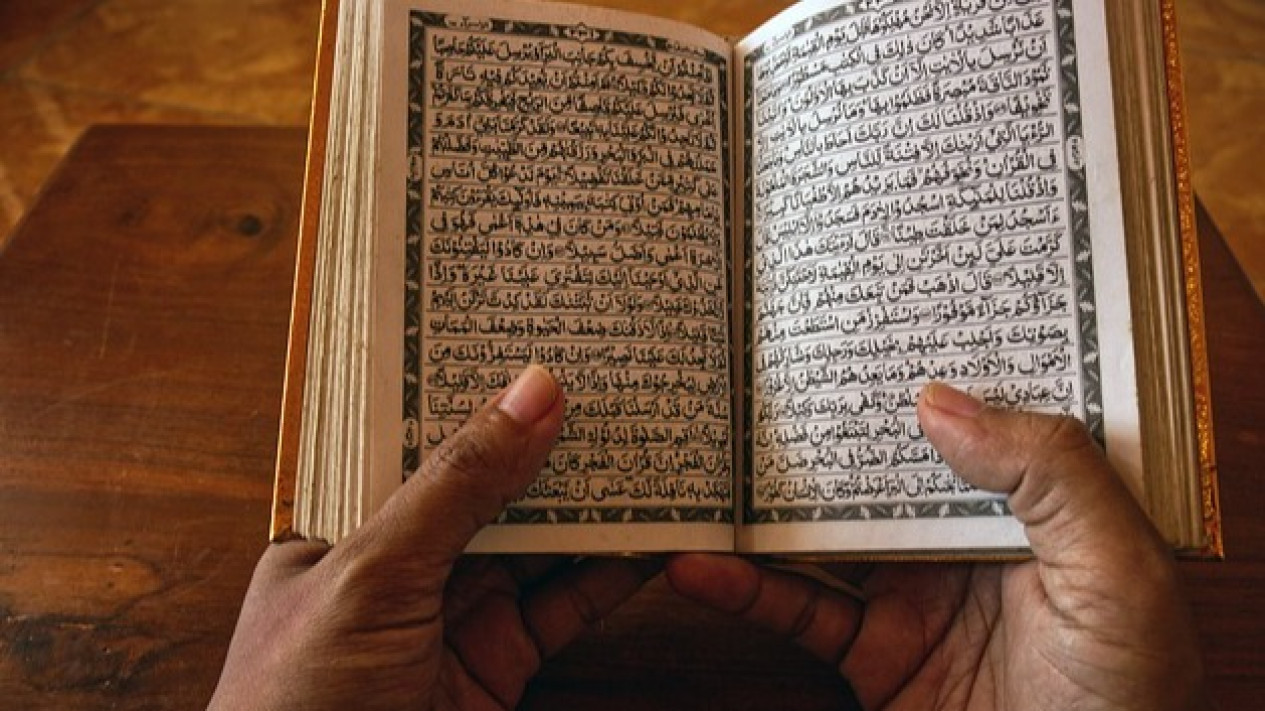 مِّنْ قَرْيَةٍ اِلَّا نَحْنُ مُهْلِكُوْهَا قَبْلَ يَوْمِ الْقِيٰمَةِ
عَذَابًا شَدِيْدًا كَانَ ذٰلِكَ فِي الْكِتٰبِ مَسْطُوْرًا
اَنْ نُّرْسِلَ بِالْاٰيٰتِ اِلَّا اَنْ كَذَّبَ بِهَا الْاَوَّلُوْنَ وَاٰتَيْنَا
ثَمُوْدَ النَّاقَةَ مُبْصِرَةً فَظَلَمُوْا بِهَا وَمَا نُرْسِلُ بِالْاٰيٰتِ
تَخْوِيْفًا وَاِذْ قُلْنَا لَكَ اِنَّ رَبَّكَ اَحَاطَ بِالنَّاسِ
الرُّءْيَا الَّتِيْ اَرَيْنٰكَ اِلَّا فِتْنَةً لِّلنَّاسِ وَالشَّجَرَةَ الْمَلْعُوْنَةَ
فِي الْقُرْاٰنِ وَنُخَوِّفُهُمْ فَمَا يَزِيْدُهُمْ اِلَّا طُغْيَانًا كَبِيْرًا
وَاِذْ قُلْنَا لِلْمَلٰٓئِكَةِ اسْجُدُوْا لِاٰدَمَ فَسَجَدُوْٓا اِلَّآ اِبْلِيْسَ قَالَ
ءَاَسْجُدُ لِمَنْ خَلَقْتَ طِيْنًا قَالَ اَرَءَيْتَكَ هٰذَا الَّذِيْ
كَرَّمْتَ عَلَيَّ لَئِنْ اَخَّرْتَنِ اِلٰى يَوْمِ الْقِيٰمَةِ لَاَحْتَنِكَنَّ
اِلَّا قَلِيْلًا قَالَ اذْهَبْ فَمَنْ تَبِعَكَ مِنْهُمْ فَاِنَّ جَهَنَّمَ
جَزَآؤُكُمْ جَزَآءً مَّوْفُوْرًا وَاسْتَفْزِزْ مَنِ اسْتَطَعْتَ مِنْهُمْ
بِصَوْتِكَ وَاَجْلِبْ عَلَيْهِمْ بِخَيْلِكَ وَرَجِلِكَ وَشَارِكْهُمْ فِي
الْاَمْوَالِ وَالْاَوْلَادِ وَعِدْهُمْ وَمَا يَعِدُهُمُ الشَّيْطٰنُ اِلَّا غُرُوْرًا
اِنَّ عِبَادِيْ لَيْسَ سُلْطٰنٌ وَكَفٰى بِرَبِّكَ وَكِيْلًا
فِي الْبَحْرِ لِتَبْتَغُوْا مِنْ فَضْلِهٖ اِنَّهٗ
مَسَّكُمُ الضُّرُّ فِي الْبَحْرِ ضَلَّ مَنْ
نَجّٰىكُمْ اِلَى الْبَرِّ اَعْرَضْتُمْ وَكَانَ الْاِنْسَانُ كَفُوْرًا
اَفَاَمِنْتُمْ اَنْ يَّخْسِفَ بِكُمْ جَانِبَ الْبَرِّ اَوْ يُرْسِلَ عَلَيْكُمْ حَاصِبًا
ثُمَّ لَا تَجِدُوْا لَكُمْ وَكِيْلًا اَمْ اَمِنْتُمْ اَنْ يُّعِيْدَكُمْ فِيْهِ تَارَةً
اُخْرٰى فَيُرْسِلَ عَلَيْكُمْ قَاصِفًا مِّنَ الرِّيْحِ فَيُغْرِقَكُمْ بِمَا كَفَرْتُمْ
ثُمَّ لَا تَجِدُوْا لَكُمْ عَلَيْنَا بِهٖ تَبِيْعًا وَلَقَدْ كَرَّمْنَا بَنِيْٓ اٰدَمَ وَ
حَمَلْنٰهُمْ فِي الْبَرِّ وَالْبَحْرِ وَرَزَقْنٰهُمْ مِّنَ الطَّيِّبٰتِ وَفَضَّلْنٰهُمْ
عَلٰى كَثِيْرٍ مِّمَّنْ خَلَقْنَا تَفْضِيْلًا يَوْمَ نَدْعُوْا كُلَّ اُنَاسٍ
بِاِمَامِهِمْ فَمَنْ اُوْتِيَ كِتٰبَهٗ بِيَمِيْنِهٖ فَاُولٰٓئِكَ يَقْرَءُوْنَ كِتٰبَهُمْ
وَلَا يُظْلَمُوْنَ فَتِيْلًا وَمَنْ كَانَ فِيْ هٰذِهٖٓ اَعْمٰى فَهُوَ فِي
الْاٰخِرَةِ اَعْمٰى وَاَضَلُّ سَبِيْلًا وَاِنْ كَادُوْا لَيَفْتِنُوْنَكَ
عَنِ الَّذِيْٓ اَوْحَيْنَآ اِلَيْكَ لِتَفْتَرِيَ عَلَيْنَا غَيْرَهٗ وَاِذًا
لَّاتَّخَذُوْكَ خَلِيْلًا وَلَوْلَآ اَنْ ثَبَّتْنٰكَ لَقَدْ كِدْتَّ تَرْكَنُ اِلَيْهِمْ
شَيْـًٔا قَلِيْلًا اِذًا لَّاَذَقْنٰكَ ضِعْفَ الْحَيٰوةِ وَضِعْفَ الْمَمَاتِ
ثُمَّ لَا تَجِدُ لَكَ عَلَيْنَا نَصِيْرًا وَاِنْ كَادُوْا لَيَسْتَفِزُّوْنَكَ مِنَ
الْاَرْضِ لِيُخْرِجُوْكَ مِنْهَا وَاِذًا لَّا اِلَّا قَلِيْلًا
سُنَّةَ مَنْ قَدْ اَرْسَلْنَا قَبْلَكَ مِنْ لِسُنَّتِنَا
تَحْوِيْلًا اَقِمِ الصَّلٰوةَ لِدُلُوْكِ الشَّمْسِ
الْفَجْرِ اِنَّ قُرْاٰنَ الْفَجْرِ كَانَ
فَتَهَجَّدْ بِهٖ نَافِلَةً لَّكَ عَسٰٓى اَنْ يَّبْعَثَكَ